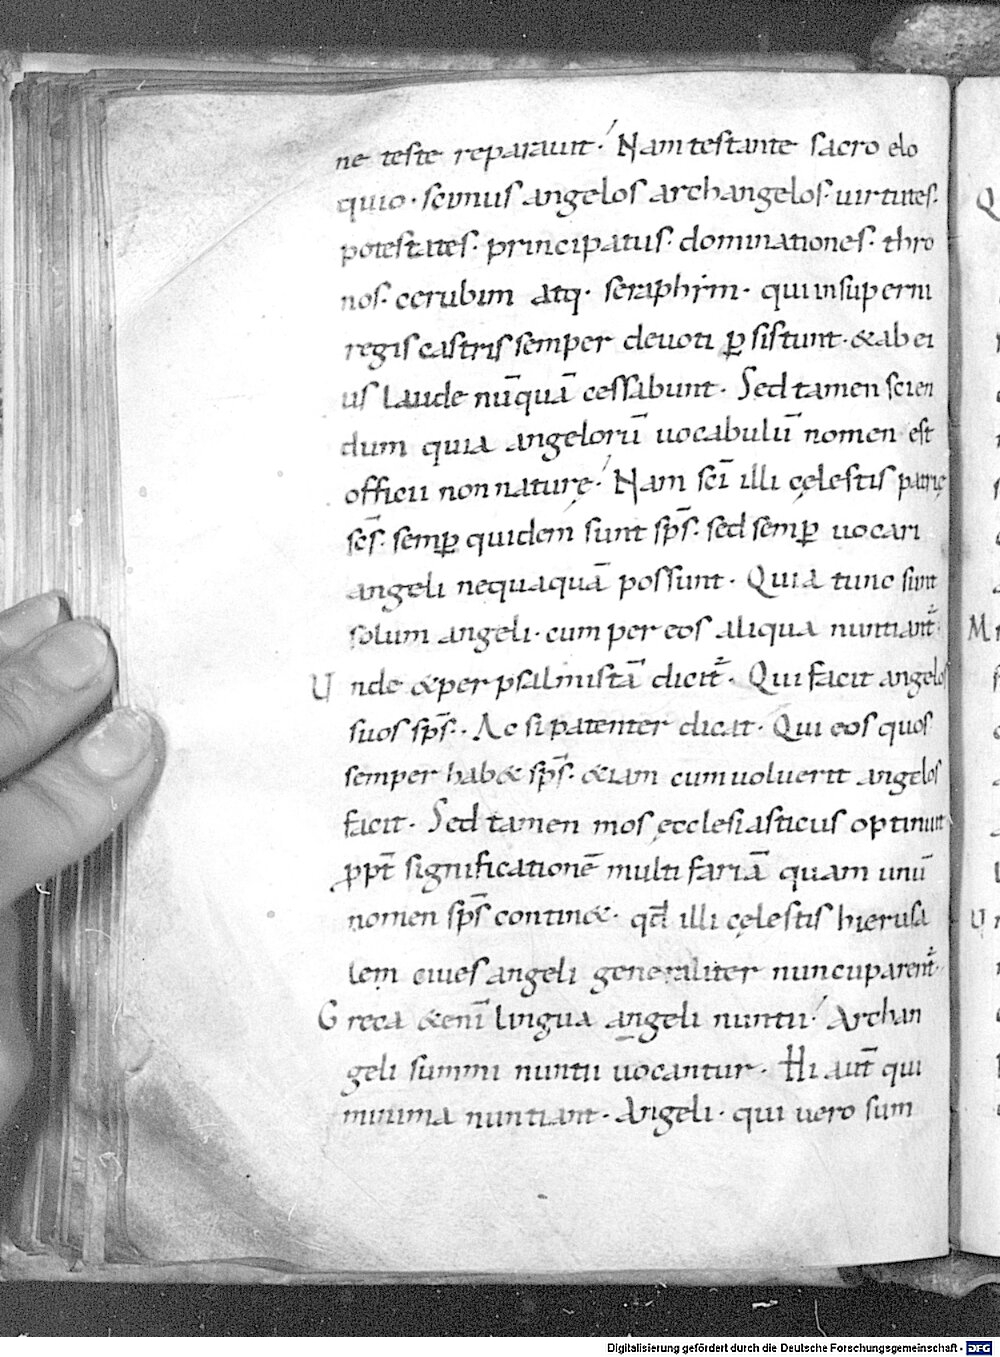 ne teste reparauit· Nam testante sacro elo
quio· scimus angelos archangelos· uirtutes·
potestates· principatus· dominationes· thro
nos· cerubim atq· seraphim· qui insuperni
regis castris semper deuoti ꝑsistunt· &ab ei
us laude nūquā cessabunt· Sed tamen scien
dum quia angelorū uocabulū nomen est
officii non naturę· Nam sci̅ illi cęlestis patrię
sc̅s· semꝑ quidem sunt sp̅s· sed semꝑ uocari
angeli nequaquā possunt· Quia tunc sunt
solum angeli· cum per eos aliqua nuntiant᷑
Unde &per psalmistā dicit᷑· Qui facit angelos
suos sp̅s· Ac si patenter dicat· Qui eos quos
semper hab& sp̅s· &iam cum uoluerit angelos
facit· Sed tamen mos ęcclesiasticus optinuit
ꝓpt̅ significationē multifariā quam unū
nomen sp̅s contin&· qd̅ illi cęlestis hierusa
lem ciues angeli generaliter nuncuparent᷑·
Greca &eni̅ lingua angeli nuntii· Archan
geli summi nuntii uocantur· Hi aut̅ qui
minima nuntiant· Angeli· qui uero sum
Digitalisierung gefördert durch die Deutsche Forschungsgemeinschaft - DFG